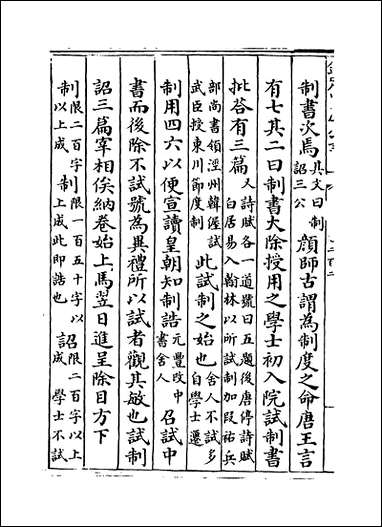 制書次焉其文曰制詔三公顔師古謂為制度之命唐王言
有七其二曰制書大除授用之學士初入院試制書
批荅有三篇又詩賦各一道號曰五題後唐停詩賦白居易入翰林以所試制加段祐兵
部尚書領涇州韓偓試武臣授東川節度制此試制之始也舍人不試多自學士遷
制用四六以便宣讀皇朝知制誥元豐改中書舍人召試中
書而後除不試號為異禮所以試者觀其敏也試制
詔三篇宰相俟納卷始上馬翌日進呈除目方下
制限二百字以上成制限一百五十字以上成此即誥也詔限二百字以上成學士不試